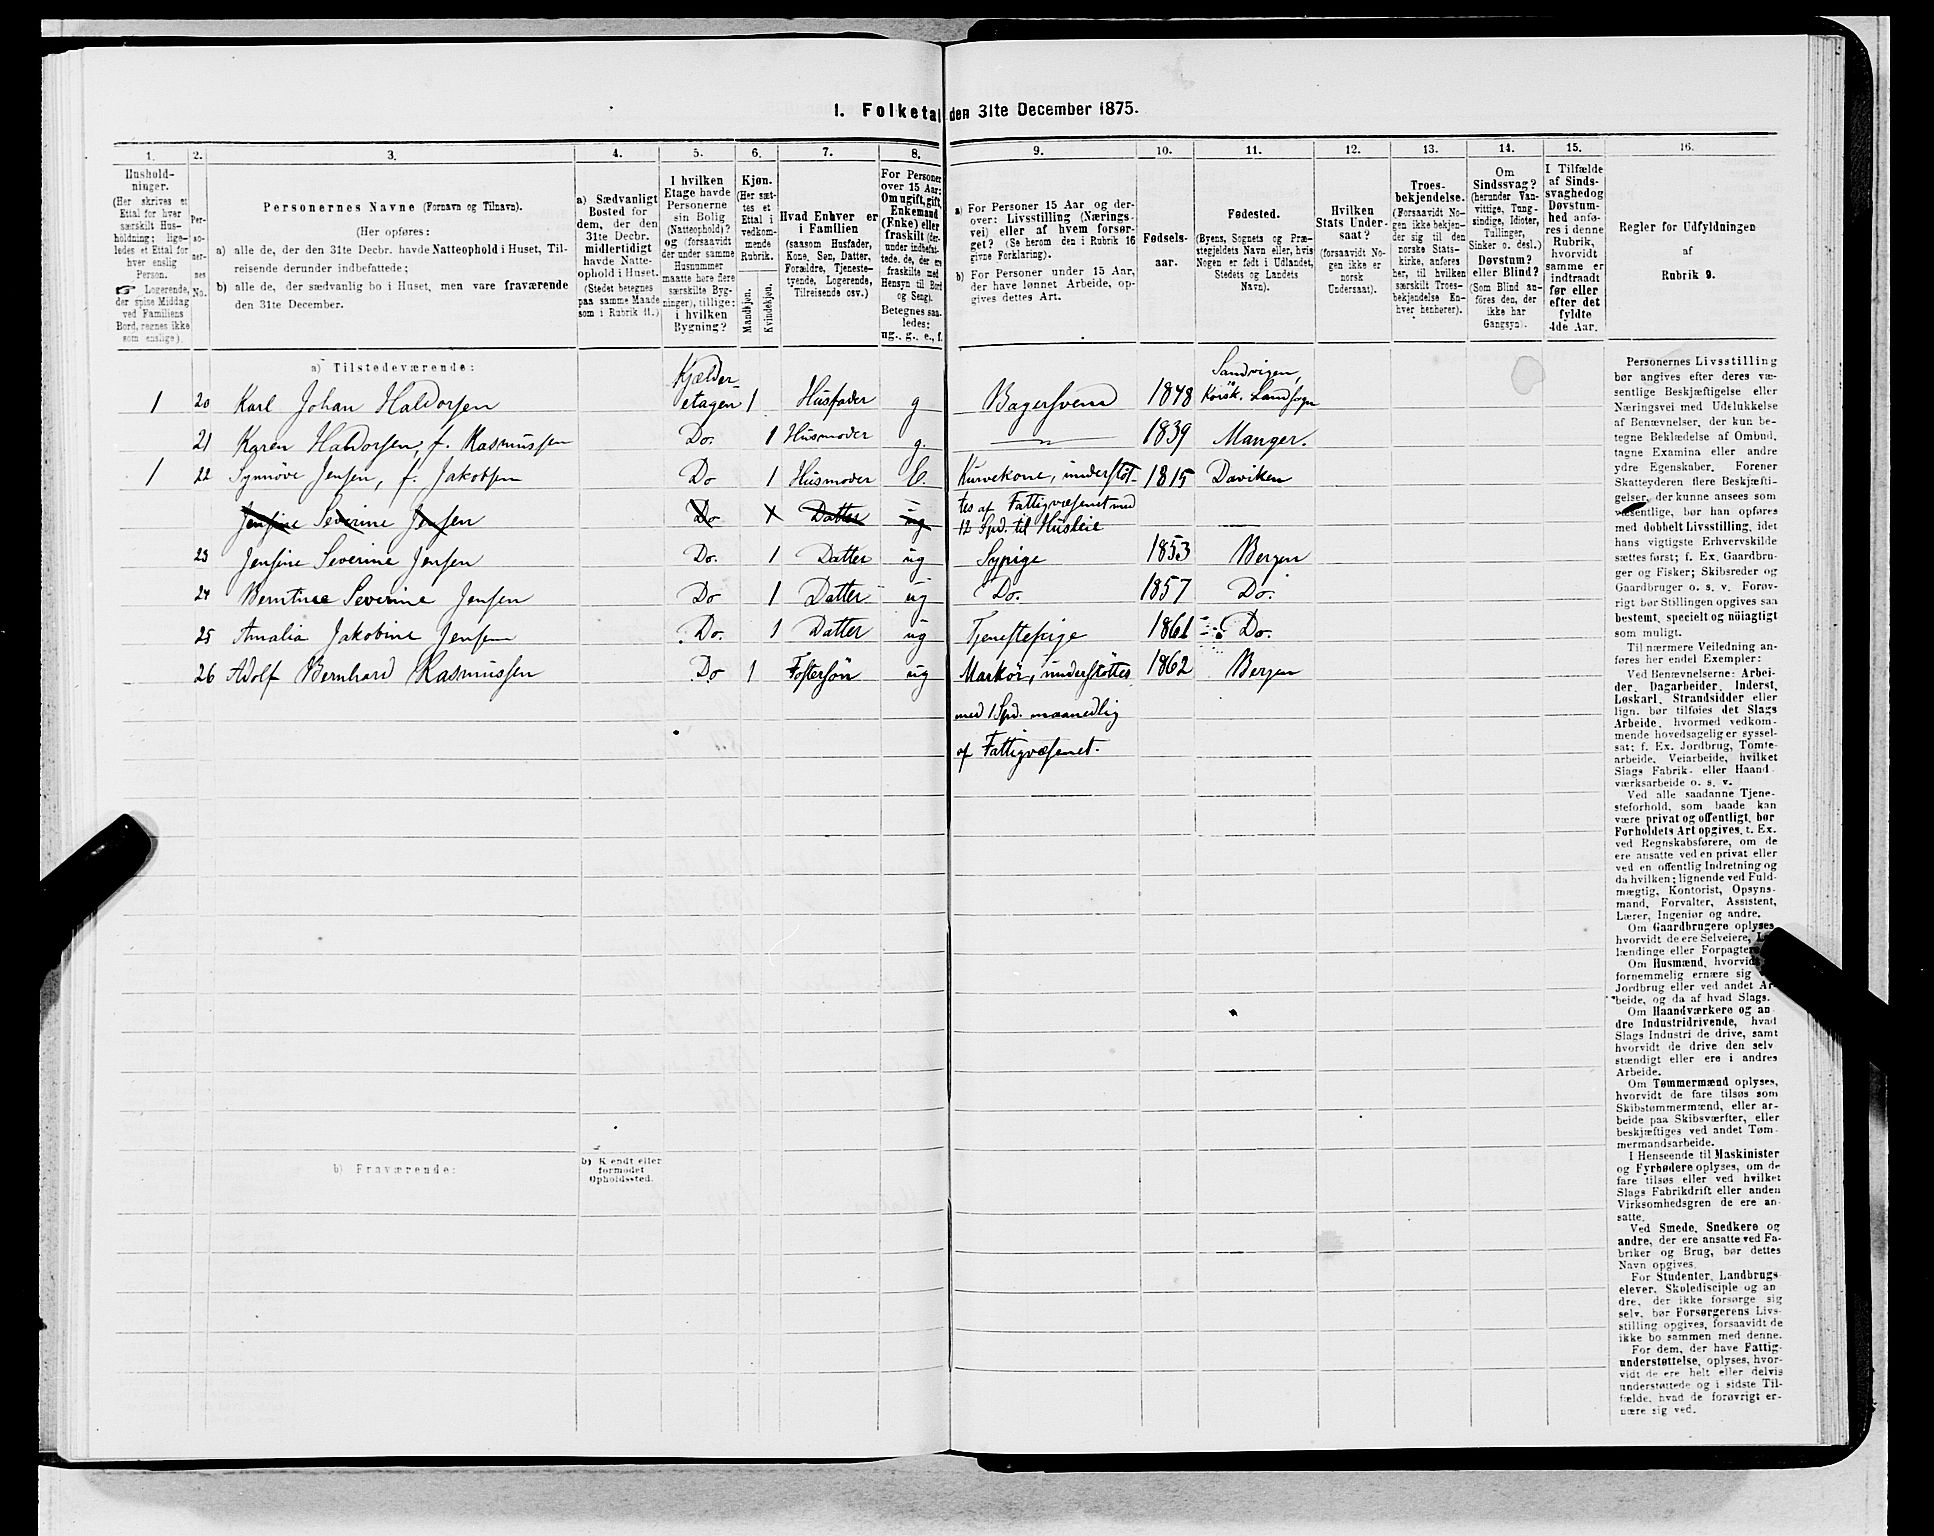 I. Folketal den 31te December 1875.
1. 2. 3. 4. 5. 6. 7. 8. 9. 10. 11. 12. 13. 14. 15. 16.
Hushold-
ninger.
(Her skrives et
Ettal for hver
særskilt Hus-
holdning; lige-
ledes et Ettal for
hver enslig
Person.
☞ Logerende,
der spise Middag
ved Familiens
Bord, regnes ikke
som enslige).
Per-
so-
ner-
nes
No.
Personernes Navne (Fornavn og Tilnavn).
(Her opføres:
a) alle de, der den 31te Decbr. havde Natteophold i Huset, Til-
reisende derunder indbefattede;
b) alle de, der sædvanlig bo i Huset, men vare fraværende
den 31te December.
a) Sædvanligt
Bosted for
dem, der den
31te Decbr.
midlertidigt
havde Natte-
ophold i Huset.
(Stedet betegnes
paa samme Maade
som i Rubrik 11.)
I hvilken
Etage havde
Personerne
sin Bolig
(Natteophold)?
og (forsaavidt
der under samme
Husnummer
maatte høre flere
særskilte Byg-
ninger), tillige:
i hvilken
Bygning?
Kjøn.
(Her sæt-
tes et
Ettal i
vedkom-
mende
Rubrik.
Mandkjøn.
Kvindekjøn.
Hvad Enhver er
i Familien
(saasom Husfader,
Kone, Søn, Datter,
Forældre, Tjeneste-
tyende, Logerende,
Tilreisende osv.)
For Personer
over 15 Aar:
Om ugift, gift,
Enkemand
(Enke) eller
fraskilt (der-
under indbefat-
tede. de, der ere
fraskilte med
Hensyn til Bord
og Seng).
Betegnes saa-
ledes:
ug., g., e., f.
a) For Personer 15 Aar og der-
over: Livsstilling (Nærings-
vei) eller af hvem forsør-
get? (Se herom den i Rubrik 16
givne Forklaring).
b) For Personer under 15 Aar,
der have lønnet Arbeide, op-
gives dettes Art.
Fødsels-
aar.
Fødested.
(Byens, Sognets og Præ-
stegjeldets Navn eller, hvis
Nogen er født i Udlandet,
Stedets og Landets
Navn).
Hvilken
Stats Under-
saat?
(forsaavidt No-
gen ikke er
norsk
Undersaat).
Troes-
bekjendelse.
(Forsaavidt No-
gen ikke bekjen-
der sig til den
norske Stats-
kirke, anføres
her, til hvilken
særskilt Troes-
bekjendelse En-
hver henhører).
Om
Sindssvag?
(herunder Van-
vittige, Tung-
sindige, Idioter,
Tullinger,
Sinker o. desl.)
Døvstum?
eller Blind?
(Som Blind an-
føres den, der
ikke har
Gangsyn).
I Tilfælde
af Sinds-
svaghed og
Døvstum-
hed anfø-
res i denne
Rubrik,
hvorvidt
samme er
indtraadt
før eller
efter det
fyldte
4de Aar.
Regler for Udfyldningen
af
Rubrik 9.
a) Tilstedeværende:
Kjælder- Sandvigen,
1 20 Karl Johan Haldorsen etagen 1 Husfader g Bagersvend 1848 Korsk. Landsogn
21 Karen Haldorsen, f. Rasmussen Do. 1 Husmoder g. — " — 1839 Manger.
1 22 Synnöve Jensen, f. Jakobsen Do 1 Husmoder E. Kurvekone, understöt- 1815 Daviken
tes af Fattigvæsenet med
Jensine Severine Jensen Do Datter ug 12 Spd. til Husleie
23 Jensine Severine Jensen Do. 1 Datter ug Sypige 1853 Bergen
24 Berntine Severine Jensen Do 1 Datter ug Do. 1857 Do.
25 Amalia Jakobine Jensen Do. 1 Datter ug Tjenestepige 1861 Do.
26 Adolf Bernhard Rasmussen Do 1 Fostersön ug Markör, understöttes 1862 Bergen
med 1 Spd. maanedlig
af Fattigvæsenet.
b) Fraværende:
b) Kjendt eller
formodet
Opholdssted.
Personernes Livsstilling
bør angives efter deres væ-
sentlige Beskjæftigelse eller
Næringsvei med Udelukkelse
af Benævnelser, der kun be-
tegne Beklædelse af Ombud,
tagne Examina eller andre
ydre Egenskaber. Forener
Skatteyderen flere Beskjæfti-
gelser, der kunne ansees som
væsentlige, bør han opføres
med dobbelt Livsstilling, idet
hans vigtigste Erhvervskilde
sættes først; f. Ex. Gaardbru-
ger og Fisker; Skibsreder og
Gaardbruger o. s. v. Forøv-
rigt bør Stillingen opgives saa
bestemt, specielt og nöiagtigt
som muligt.
Til nærmere Veiledning an-
føres her endel Exempler:
Ved Benævnelserne: Arbei-
der, Dagarbeider, Inderst,
Løskarl, Strandsidder eller
lign. bør tilføies det Slags
Arbeide, hvormed vedkom-
mende hovedsagelig er syssel-
sat; f. Ex. Jordbrug, Tomte-
arbeide, Veiarbeide, hvilket
Slags Fabrik- eller Haand-
værksarbeide o. s. v.
Ved alle saadanne Tjene-
steforhold, som baade kan
være privat og offentligt, bør
Forholdets Art opgives, t. Ex.
ved Regnskabsførere, om de
ere ansatte ved en privat eller
ved en offentlig Indretning og
da hvilken; lignende ved Fuld-
mægtig, Kontorist, Opsyns-
mand, Forvalter, Assistent,
Lærer, Ingeniør og andre.
Om Gaardbrugere oplyses,
hvorvidt de ere Selveiere,
lændinge eller Forpagtere.
Om Husmænd, hvorvidt
fornemmelig ernære sig
Jordbrug eller ved andet Ar-
beide, og da af hvad Slags.
Om Haandværkere og an-
dre Industridrivende, hvad
Slags Industri de drive, samt
hvorvidt de drive den selv-
stændigt eller ere i andres
Arbeide.
Om Tømmermænd oplyses,
hvorvidt de fare tilsøs som
Skibstømmermænd, eller ar-
beide paa Skibsværfter, eller
beskjæftiges ved andet Tøm-
mermandsarbeide.
I Henseende til Maskinister
og Fyrbødere oplyses, om de
fare tilsøs eller ved hvilket
Slags Fabrikdrift eller anden
Virksomhedsgren de ere an-
satte.
Ved Smede, Snedkere og
andre, der ere ansatte ved Fa-
briker og Brug, bør dettes
Navn opgives.
For Studenter, Landbrugs-
elever, Skoledisciple og an-
dre, der ikke forsørge sig
selv, bør Forsørgerens Livs-
stilling opgives, forsaavidt de
ikke bo sammen med denne.
For dem, der have Fattig-
understøttelse, oplyses, hvor-
vidt de ere helt eller delvis
understøttede og i sidste Til-
fælde, hvad de forøvrigt er-
nære sig ved.